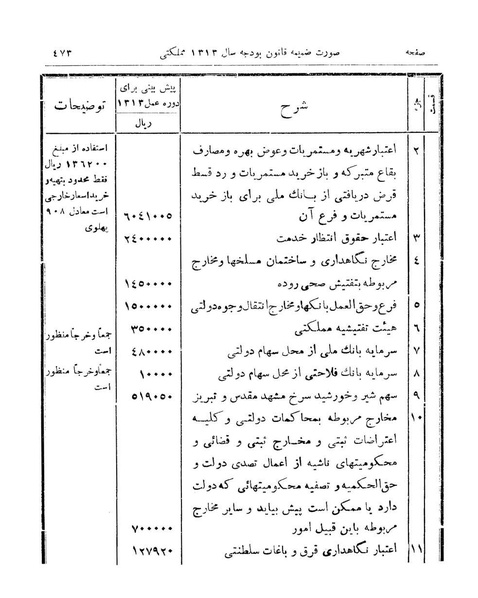 صفحه
صورت ضمیمه قانون بودجه سال ۱۳۱۳ مملکتی
٤٧٣
قسمت
ماده
شرح
پیش بینی برای
دوره عمل ۱۳۱۳
ریال
توضیحات
۲
اعتبار شهریه و مستمریات و عوض بهره و مصارف
بقاع متبرکه و باز خرید مستمریات و رد قسط
قرض دریافتی از بانك ملی برای باز خرید
مستمریات و فرع آن
٦٠٤١٠٠٥
استفاده از مبلغ
۱۳٦۲۰۰ ریال
فقط محدود بتهیه و
خرید اسعار خارجی
است معادل ۹۰۸
پهلوی
۳
اعتبار حقوق انتظار خدمت
۲٤۰۰۰۰۰
٤
مخارج نگاهداری و ساختمان مسلخها و مخارج
مربوطه بتفتیش صحی روده
۱٤٥۰۰۰۰
٥
فرع و حق العمل بانکها و مخارج انتقال وجوه دولتی
۱٥۰۰۰۰۰
٦
هیئت تفتیشیه مملکتی
۳٥۰۰۰۰
۷
سرمایه بانك ملی از محل سهام دولتی
٤۸۰۰۰۰
جمعاً و خرجاً منظور
است
۸
سرمایه بانك فلاحتی از محل سهام دولتی
۱۰۰۰۰
جمعاً و خرجاً منظور
است
۹
سهم شیر و خورشید سرخ مشهد مقدس و تبریز
٥۱۹۰٥۰
۱۰
مخارج مربوطه بمحاکمات دولتی و کلیه
اعتراضات ثبتی و مخارج ثبتی و قضائی و
محکومیتهای ناشیه از اعمال تصدی دولت و
حق الحکمیه و تصفیه محکومیتهائی که دولت
دارد یا ممکن است پیش بیاید و سایر مخارج
مربوطه باین قبیل امور
۷۰۰۰۰۰
۱۱
اعتبار نگاهداری قرق و باغات سلطنتی
۱۲۷۹۲۰